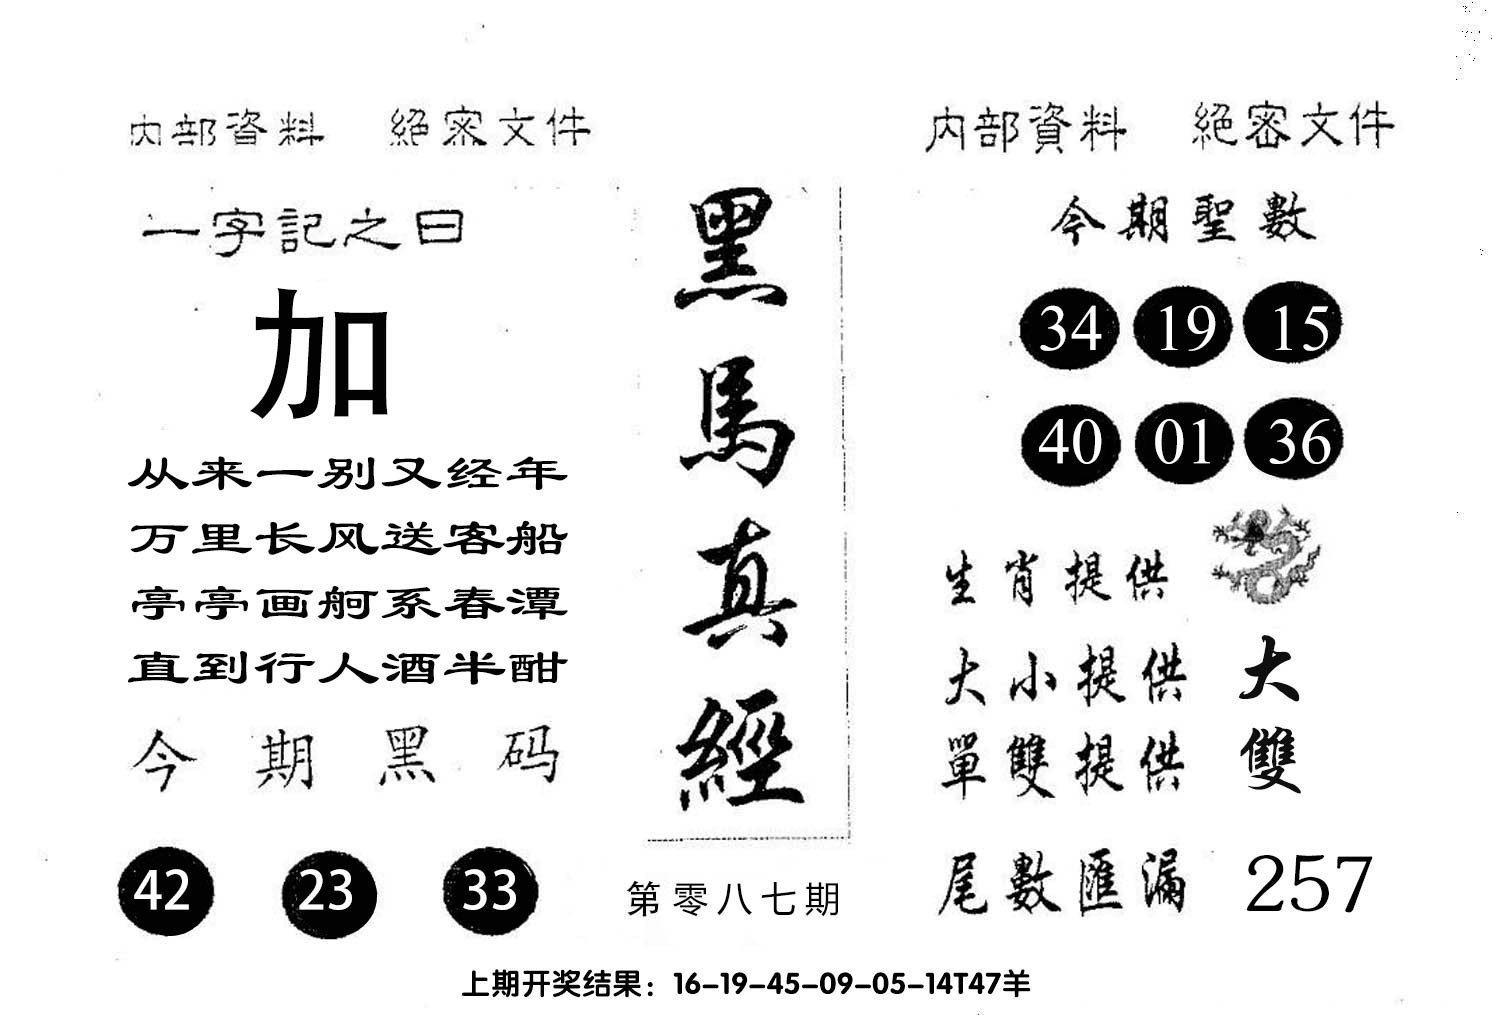 內部資料 絕密文件
一字記之曰
加
从来一别又经年
万里长风送客船
亭亭画舸系春潭
直到行人酒半酣
今期黑码
42 23 33
黑馬真經
第零八七期
內部資料 絕密文件
今期聖數
34 19 15
40 01 36
生肖提供
大小提供 大
單雙提供 雙
尾數匯漏 257
上期开奖结果：16-19-45-09-05-14T47羊